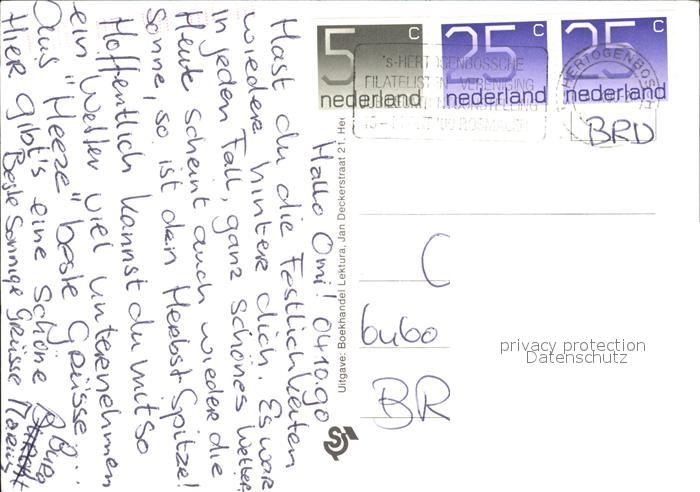 Hallo Omi! 04.10.90
Hast du die Festlichkeiten
wieder hinter dich. Es war
in jeden Fall, ganz schönes Wetter.
Heute scheint auch wieder die
Sonne, so ist den Herbst Spitze!
Hoffentlich kannst du mit so
ein Wetter viel unternehmen
Aus "Heeze" beste Grüsse...
Hier gibt's eine schöne Burg
Beste Sonnige Grüsse
Uitgave: Boekhandel Lektura, Jan Deckerstraat 21, Hee
5 c
nederland
25 c
nederland
25 c
nederland
's-HERTOGENBOSSCHE
FILATELISTEN VERENIGING
ROSMALEN
HERTOGENBOS
BRD
C
6460
BR
privacy protection
Datenschutz